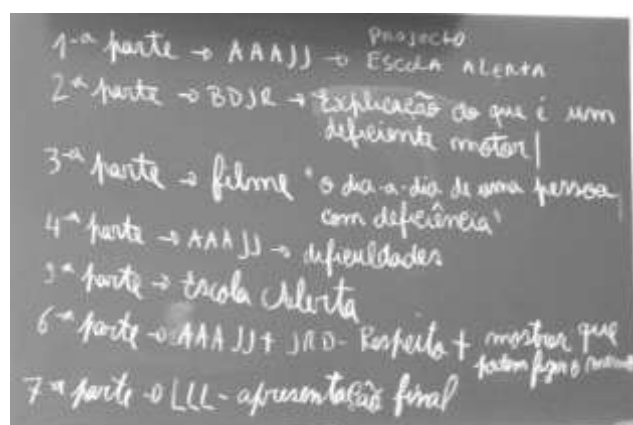 1-ª parte → AAAJJ → PROJECTO
ESCOLA ALERTA
2ª parte → BDJR → Explicação do que é um
deficiente motor
3-ª parte → filme "o dia-a-dia de uma pessoa
com deficiência"
4-ª parte → AAAJJ → dificuldades
5ª parte → Escola Alerta
6-ª parte → AAAJJ + JRD - Respeito + mostrar que
podem
7-ª parte → LLL - apresentação final